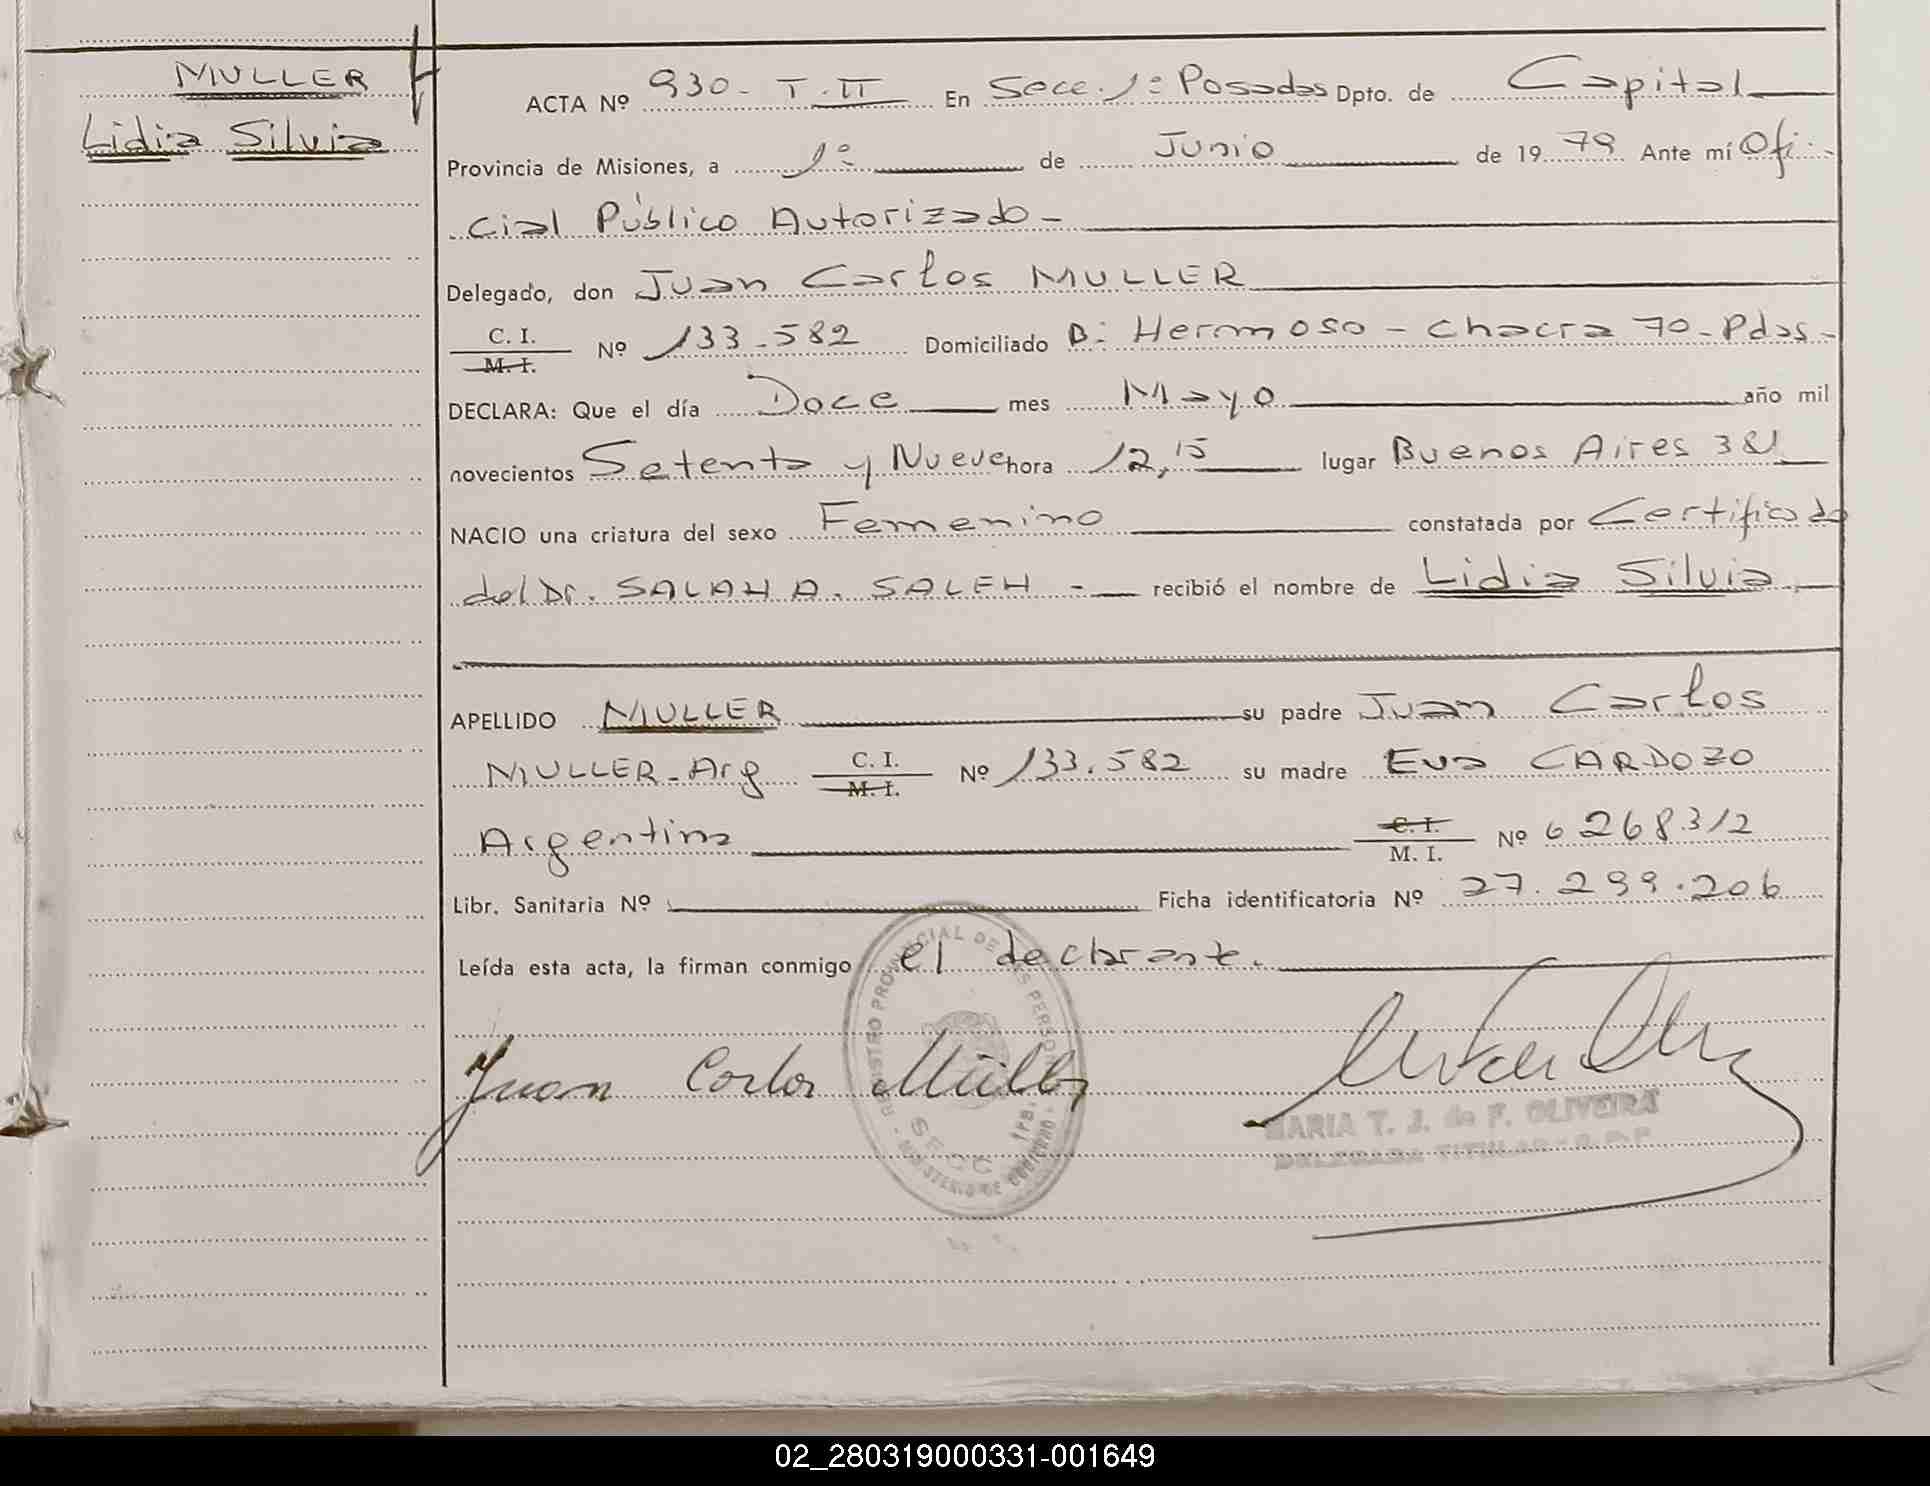 MULLER
Lidia Silvia
ACTA Nº 930- T.II En Secc. 1º Posadas Dpto. de Capital
Provincia de Misiones, a 1º de Junio de 1979 Ante mí Ofi-
cial Público Autorizado-
Delegado, don Juan Carlos MULLER
C. I.
M. I. Nº 133.582 Domiciliado B: Hermoso - Chacra 70-Pdas-
DECLARA: Que el día Doce mes Mayo año mil
novecientos Setenta y Nueve hora 12,15 lugar Buenos Aires
NACIO una criatura del sexo Femenino constatada por Certificado
del Dr. SALAH A. SALEH - recibió el nombre de Lidia Silvia
APELLIDO MULLER su padre Juan Carlos
MULLER-Arg C. I. M. I. Nº 133.582 su madre Eva CARDOZO
Argentina C. I. M. I. Nº 6268312
Libr. Sanitaria Nº Ficha identificatoria Nº 27.299.206
Leída esta acta, la firman conmigo el declarante.
Juan Carlos Müller
REGISTRO PROVINCIAL DE LAS PERSONAS
SECC. 1RA.
MINISTERIO DE GOBIERNO
MARIA T. J. de F. OLIVEIRA
DELEGADA TITULAR - R.P.P.
02_280319000331-001649